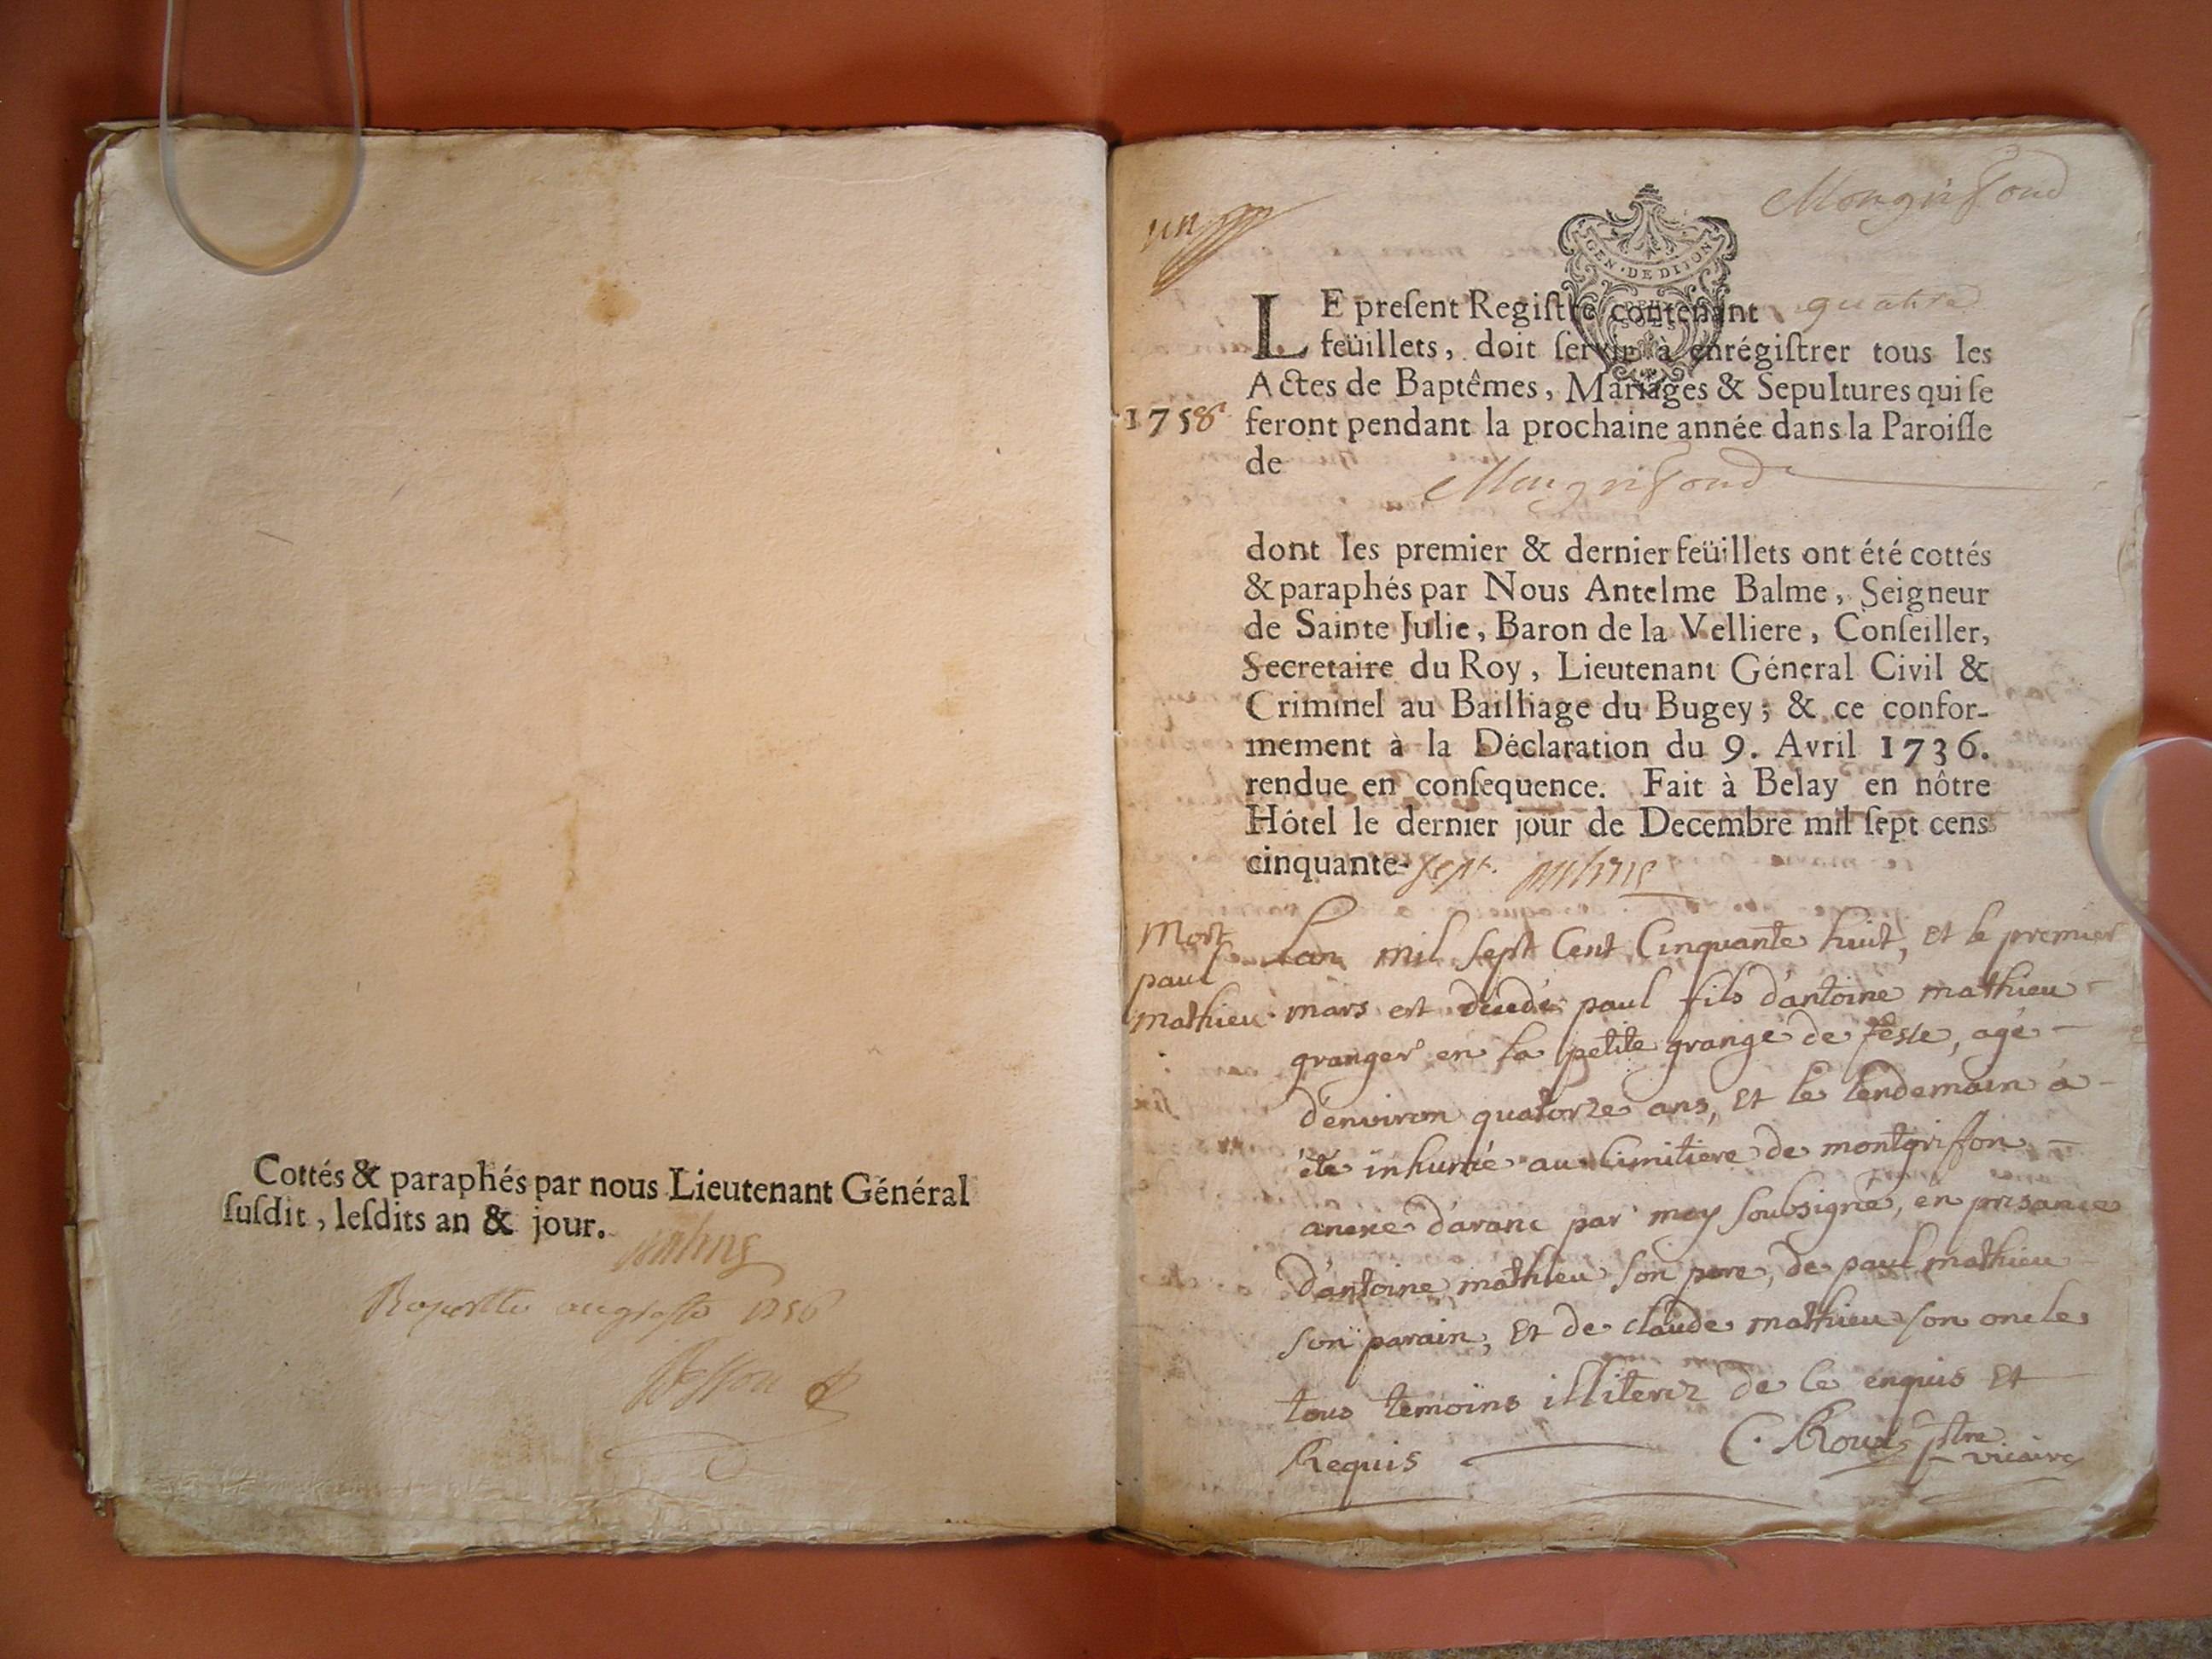 Cottés & paraphés par nous Lieutenant Général
ſuſdit, leſdits an & jour.
Balme
Raportté au greffe 1758
un
Mongriffond
GEN · DE DIJON
LE preſent Regiſtre contenant quatre
feüillets, doit ſervir à enrégiſtrer tous les
Actes de Baptêmes, Mariages & Sepultures qui ſe
1758 feront pendant la prochaine année dans la Paroiſſe
de Mongriffond
dont les premier & dernier feüillets ont été cottés
& paraphés par Nous Antelme Balme, Seigneur
de Sainte Julie, Baron de la Velliere, Conſeiller,
Secretaire du Roy, Lieutenant Géneral Civil &
Criminel au Bailliage du Bugey; & ce confor-
mement à la Déclaration du 9. Avril 1736.
rendue en conſequence. Fait à Belay en nôtre
Hôtel le dernier jour de Decembre mil ſept cens
cinquante-sept. Balme
Mort
paul
mathieu
Lan mil sept Cent Cinquante huit, et le premier
mars est décédé paul fils d'antoine mathieu
granger en la petite grange de , agé
d'environ quatorze ans, et le lendemain a
été inhumé au cimitiere de montgriffon
anexe d'aranc par moy soubsigné, en presance
d'antoine mathieu son pere, de paul mathieu
son parain, et de claude mathieu son oncle
tous temoins illiterez de ce enquis et
Requis C. Roux ptre
vicaire